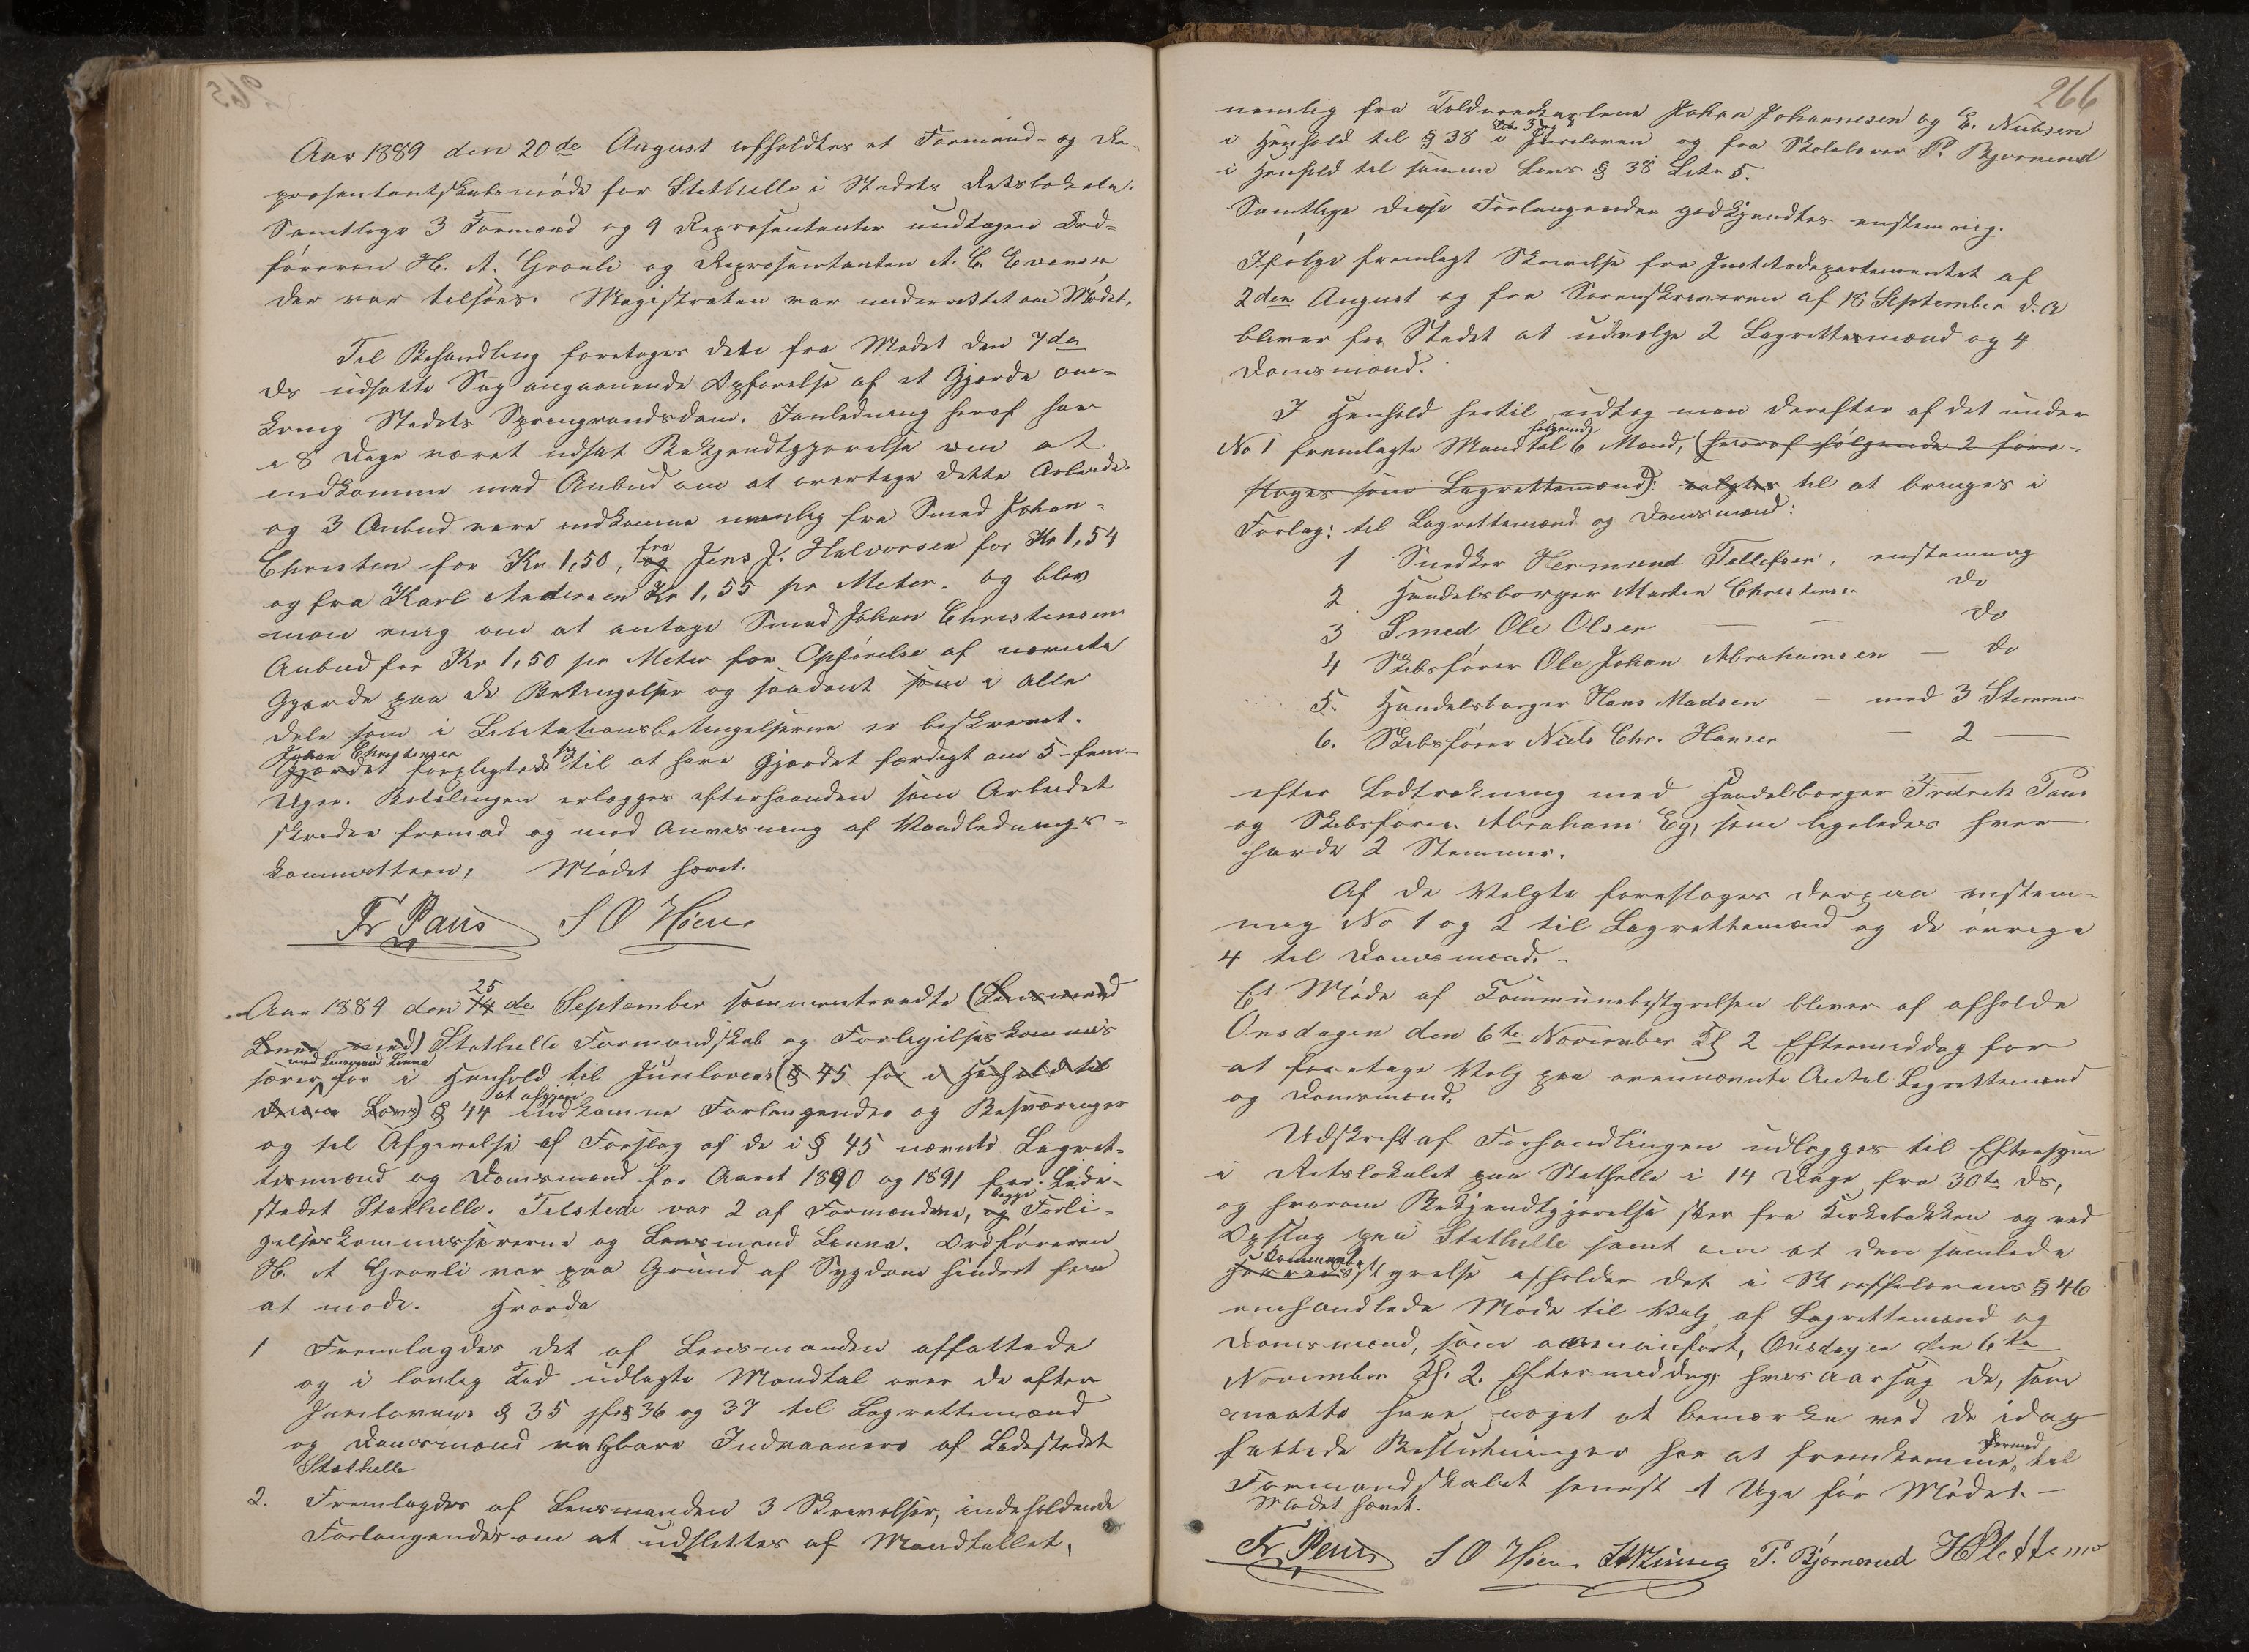 Aar 1889 den 20de August afholdtes et Formand- og Re-
præsentantskabsmøde for Stathelle i Stedets Retslokale.
Samtlige 3 Formænd og 9 Repræsentanter undtagen Ord-
føreren H. A. Graali og Repræsentanten A. C. Evensen
der var tilsjøes. Magistraten var underrettet om Mødet.
Til Behandling foretoges dete fra Mødet den 7de
ds udsatte Sag angaaende Opførelse af et Gjærde om-
kring Stedets Springvandsdam. Ianledning heraf har
i 8 Dage været udsat Bekjendtgjørelse om at
indkomme med Anbud om at overtage dette Arbeide.
og 3 Anbud vare indkomne nemlig fra Smed Johan
Christen for Kr 1,50, og fra Jens J. Halvorsen for Kr 1,54
og fra Karl Andersen Kr 1,55 pr Meter. og blev
man enig om at antage Smed Johan Christensens
Anbud for Kr 1,50 pr Meter for Opførelse af nævnte
Gjærde paa de Betingelser og saadant som i alle
Dele som i Licitationsbetingelserne er beskrevet.
Johan Christensen
Gjærdet forpligtede sig til at have Gjærdet færdigt om 5-fem-
Uger. Betalingen erlægges efterhaanden som Arbeidet
skrider fremad og mod Anvisning af Vandlednings-
kommitteen. Mødet hævet.
Fr Paus S O Hoen
Aar 1889 den 14 25 de September sammentraadte (Lensmand
Linna med) Stathelle Formandskab og Forligelseskommis
særer med Lensmand Linna for i Henhold til Jurylovens (§ 45 for i Henhold til
denne Lovs) § 44 at afgjøre indkomne Forlangender og Besværinger
og til Afgivelse af Forslag af de i § 45 nævnte Lagret-
tesmænd og Domsmænd for Aaret 1890 og 1891 for Lade-
stedet Stathelle. Tilstede var 2 af Formændene, og begge Forli-
gelseskommissærerne og Lensmand Linna. Ordføreren
H. A Graali var paa Grund af Sygdom hindret fra
at møde. Hvorda
1 Fremlagdes det af Lensmanden affattede
og i lovlig Tid udlagte Mandtal over de efter
Jurylovens § 35 jfr § 36 og 37 til Lagrettemænd
og Domsmænd valgbare Indvaanere af Ladestedet
Stathelle
2. Fremlagdes af Lensmanden 3 Skrivelser, indeholdende
Forlangender om at udslettes af Mandtallet,
266
nemlig fra Toldvoerkarlene Johan Johannesen og E. Nielsen
i Henhold til § 38 i Juryloven og fra Skolelærer P. Bjørnerud
i Henhold til samme Lovs § 38 Litr 5.
Samtlige disse Forlangender godkjendtes enstemmig.
Ifølge fremlagt Skrivelse fra Justitsdepartementet af
2den August og fra Sorenskriveren af 18 September d. A
bliver for Stedet at udvælge 2 Lagrettesmænd og 4
Domsmænd.
I Henhold hertil udtog man derefter af det under
No 1 fremlagte Mandtal følgende 6 Mænd, (hvoraf følgende 2 fore-
sloges som Lagrettemænd): valgtes til at bringes i
Forslag: til Lagrettemænd og Domsmænd:
1 Snedker Hermund Tellefsen, enstemmig
2 Handelsborger Martin Christensen do
3 Smed Ole Olsen — — do
4 Skibsfører Ole Johan Abrahamsen — do
5. Handelsborger Hans Madsen — med 3 Stemmer
6. Skibsfører Niels Chr. Hansen — 2 —
efter Lodtrækning med Handelborger Fredrik Paus
og Skibsfører Abraham Eg, som ligeledes hver
havde 2 Stemmer.
Af de Valgte foresloges derpaa enstem-
mig No 1 og 2 til Lagrettemænd og de øvrige
4 til Domsmænd. -
Et Møde af Kommunebestyrelsen bliver at afholde
Onsdagen den 6te November Kl 2 Eftermiddag for
at foretage Valg paa ovennævnte Antal Lagrettemænd
og Domsmænd.
Udskrift af Forhandlingen udlægges til Eftersyn
i Retslokalet paa Stathelle i 14 Dage fra 30te ds,
og hvorom Bekjendtgjørelse sker fra Kirkebakken og ved
Opslag paa Stathelle samt om at den samlede
Kommunebestyrelse afholder det i Straffelovens § 46
omhandlede Møde til Valg af Lagrettemænd og
Domsmænd, som ovenanført, Onsdagen den 6te
November Kl. 2. Eftermiddag, hvesaarsag de, som
maatte have noget at bemærke ved de idag
fattede Beslutninger har at fremkomme dermed til
Formandskabet senest 1 Uge før Mødet. —
Mødet hævet.
Fr Paus S O Hoen P. Bjørnerud